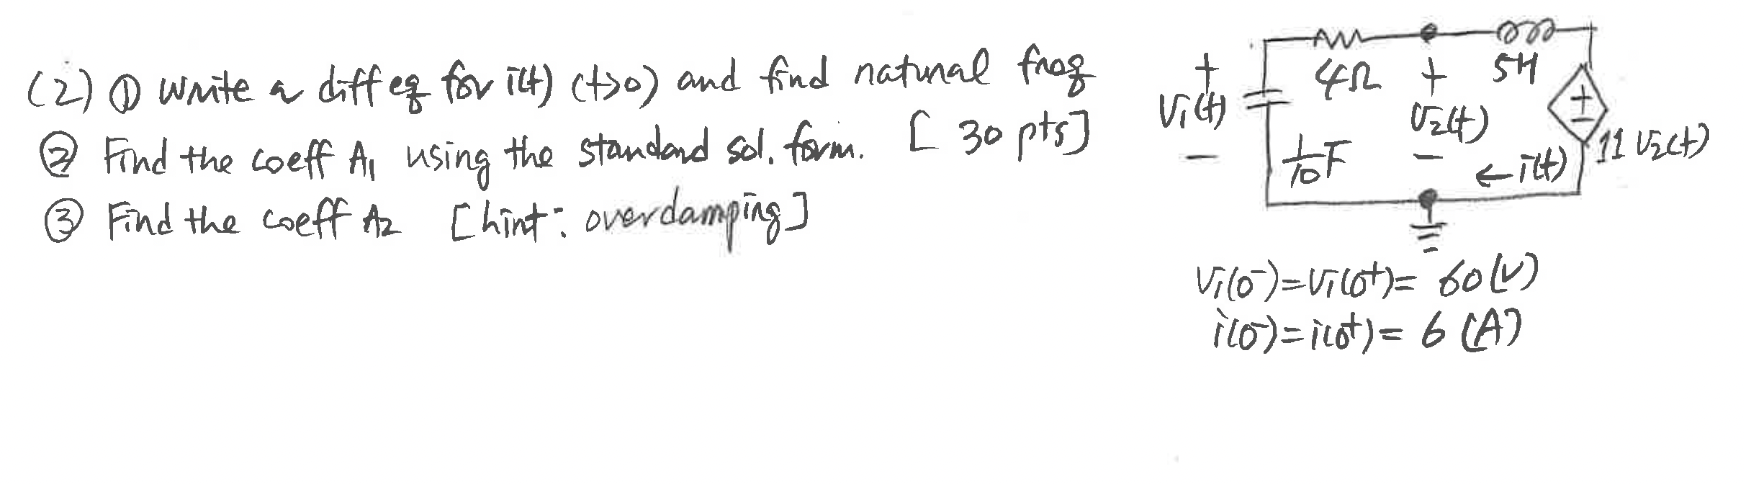 (2) ① Write a diff eq for i(t) (t>0) and find natural freq
② Find the coeff A₁ using the standard sol. form. [30 pts]
③ Find the coeff A₂ [hint: overdamping]
4Ω
5H
+
V₁(t)
−
1/10 F
+
V₂(t)
−
← i(t)
+
−
11 V₂(t)
V₁(0⁻)=V₁(0⁺)= 60(V)
i(0⁻)=i(0⁺)= 6 (A)